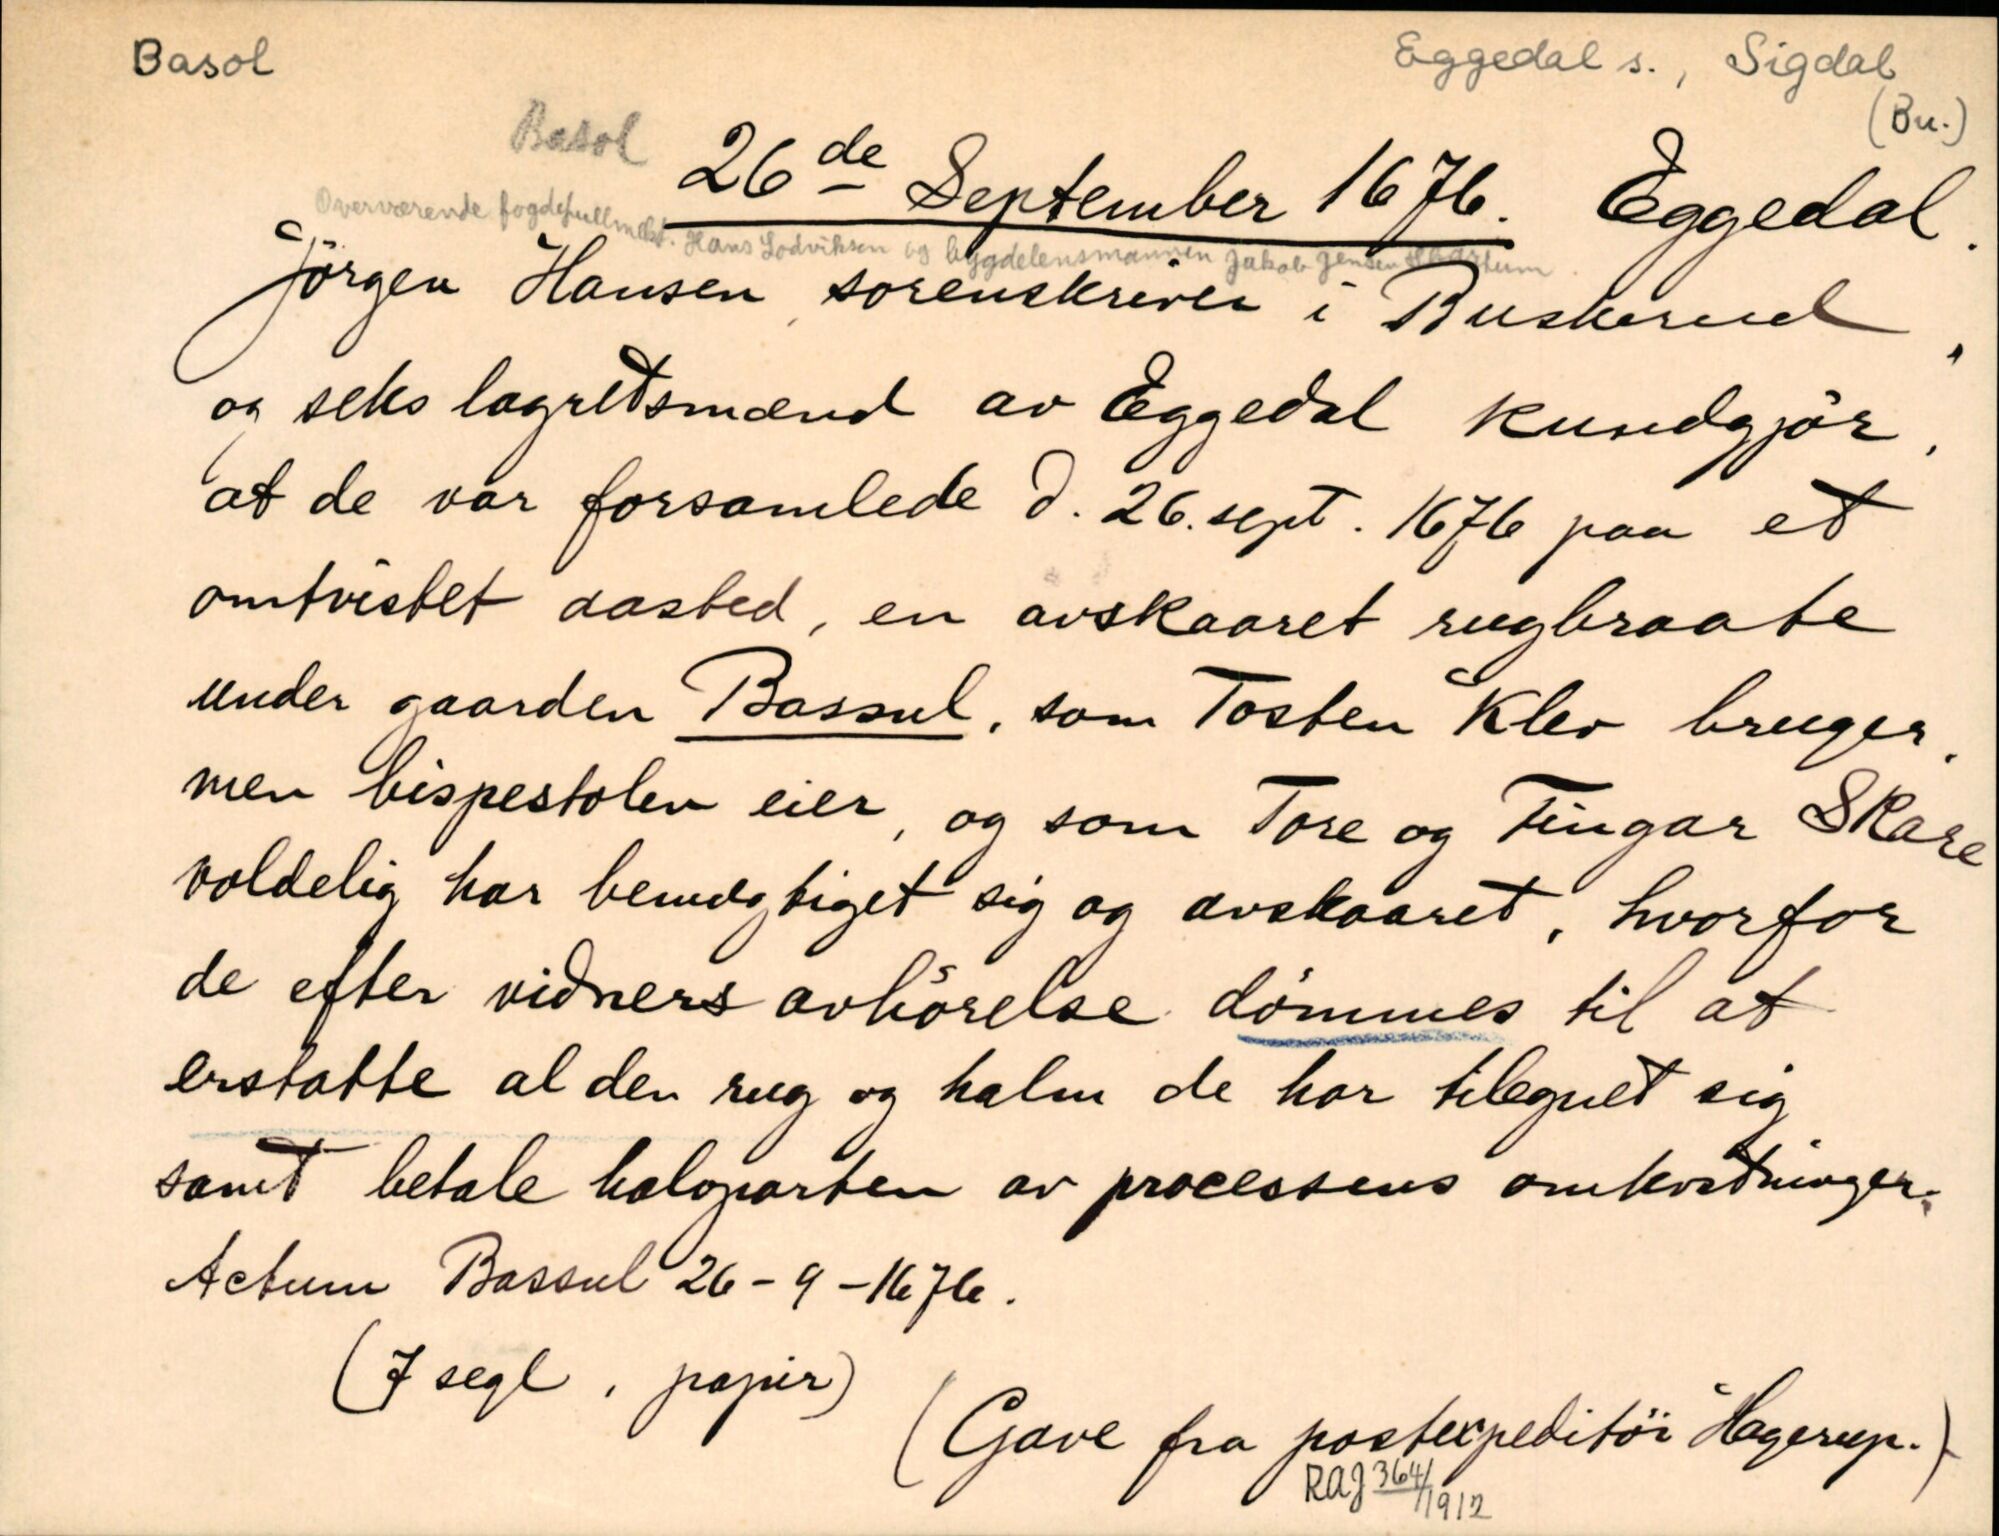 Basol
Eggedal s., Sigdal
(Bu.)
Basol
26de September 1676. Eggedal.
Overværende fogdefullmekt. Hans Lodviksen og bygdelensmannen Jakob Jensen
Jörgen Hansen, sorenskriver i Buskerud,
og seks lagretsmænd av Eggedal kundgjör,
at de var forsamlede d. 26. sept. 1676 paa et
omtvistet aasted, en avskaaret rugbraate
under gaarden Bassul, som Tosten Klev bruger,
men bispestolen eier, og som Tore og Fingar Skare
voldelig har bemægtiget sig og avskaaret, hvorfor
de efter vidners avhörelse dömmes til at
erstatte al den rug og halm de har tilegnet sig
samt betale halvparten av processens omkostninger.
Actum Bassul 26-9-1676.
(7 segl, papir)
(Gave fra postexpeditör Hagerup.)
RAJ 364/1912